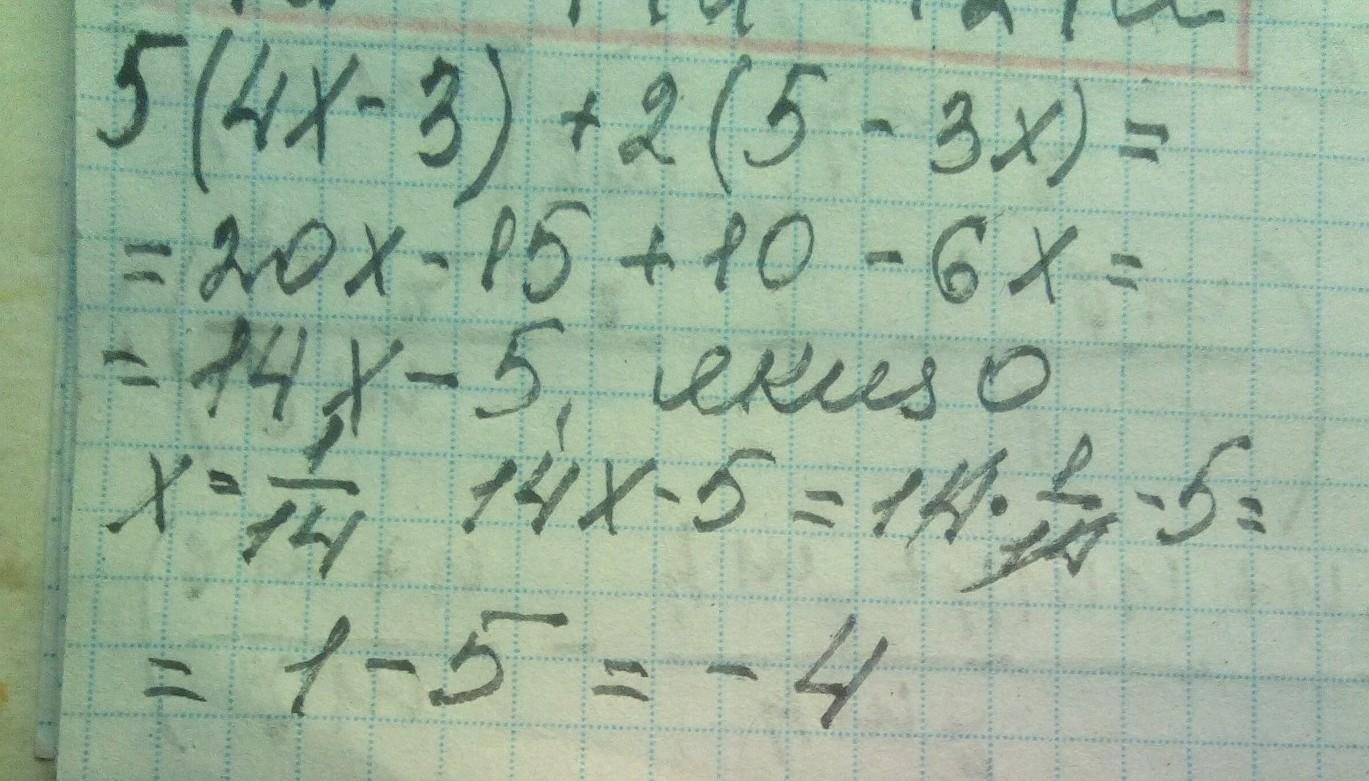 5(4x-3)+2(5-3x)=
=20x-15+10-6x=
=14x-5, якщо
x=1/14 14x-5=14·1/14-5=
=1-5=-4